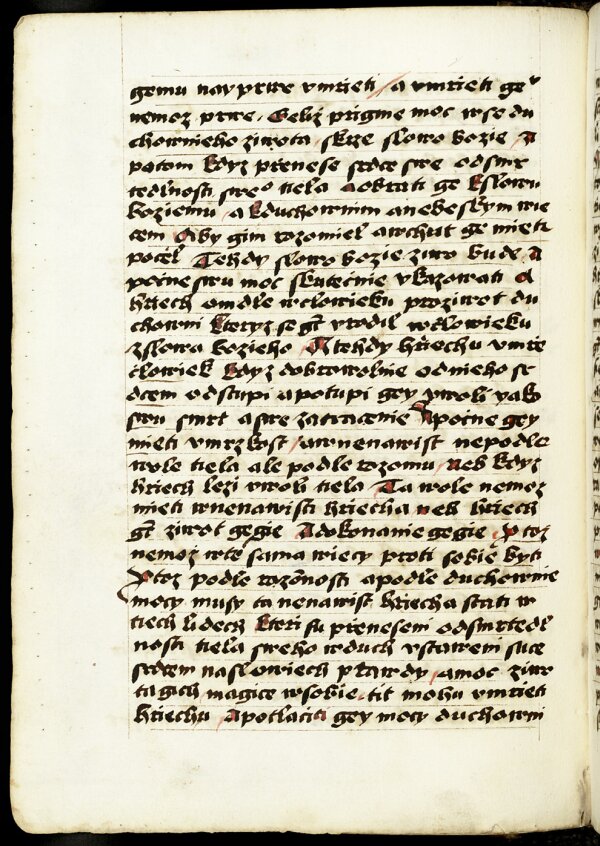 gemu nayprwe vmrzieti / a vmrzieti ge°
nemoz prwe . Geliz prigme moc wse du
chownieho ziwota / skrze slowo bozie / A
potom kdyz prenese srdce swe odsmr
tedlnosti swe° tiela aobrati ge kslowu
boziemu / akduchownim anebeskym wie
cem / Aby gim rozomiel awchut ge mieti
pocel / Tehdy slowo bozie ziwo bude / A
pocne swu moc skutecnie vkazowati / A
hrziech omdle wclowieku proziwot du
chowni kteryz se gt vrodil wclowieku
zslowa bozieho / A tehdy hrziechu vmrze
clowiek kdyz dobrowolnie odnieho sr
dcem odstupi apotupi gey zwoli yako
swu smrt aswe zatracenie / Apocne gey
mieti vmrzkost / awnenawist nepodle
wole tiela ale podle rozomu / neb kdyz
hrziech lezi wwoli tiela / Ta wole nemoz
mieti wnenawisti hrziecha neb hrziech
gt ziwot gegie / Adokonanie gegie / Protoz
nemoz wole sama wiecy proti sobie byti
Protoz podle rozomnosti apodle duchownie
mocy musy ta nenawist hrziecha stati w
tiech lidech kterzi su przeneseni odsmrtedl
nosti tiela sweho wduch vstaweni suce
srdcem naslowiech prawdy / amoc ziwo
ta gich magice wsobie / tit mohu vmrzieti
hrziechu / Apotlaciti gey mocy duchowni